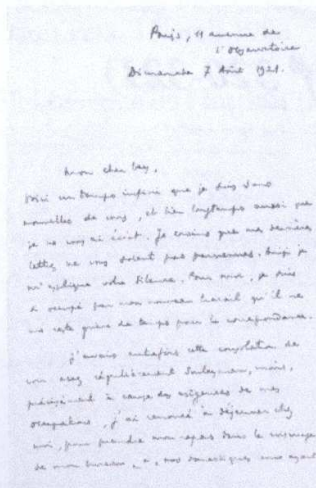 Paris, 11 avenue de
l'Observatoire
Dimanche 7 Août 1921.
Mon cher bey,
Voici un temps infini que je suis sans
nouvelles de vous, et bien longtemps aussi que
je ne vous ai écrit. Je crains que mes dernières
lettres ne vous soient pas parvenues. Ainsi je
m'explique votre silence. Pour moi, je suis
si occupé par mon nouveau travail qu'il ne
me reste guère de temps pour la correspondance.
J'avais autrefois cette consolation de
voir assez régulièrement Souleyman, mais,
précisément à cause des exigences de mes
occupations, j'ai renoncé à déjeuner chez
moi, pour prendre mon repas dans le voisinage
de mon bureau, nos domestiques nous ayant